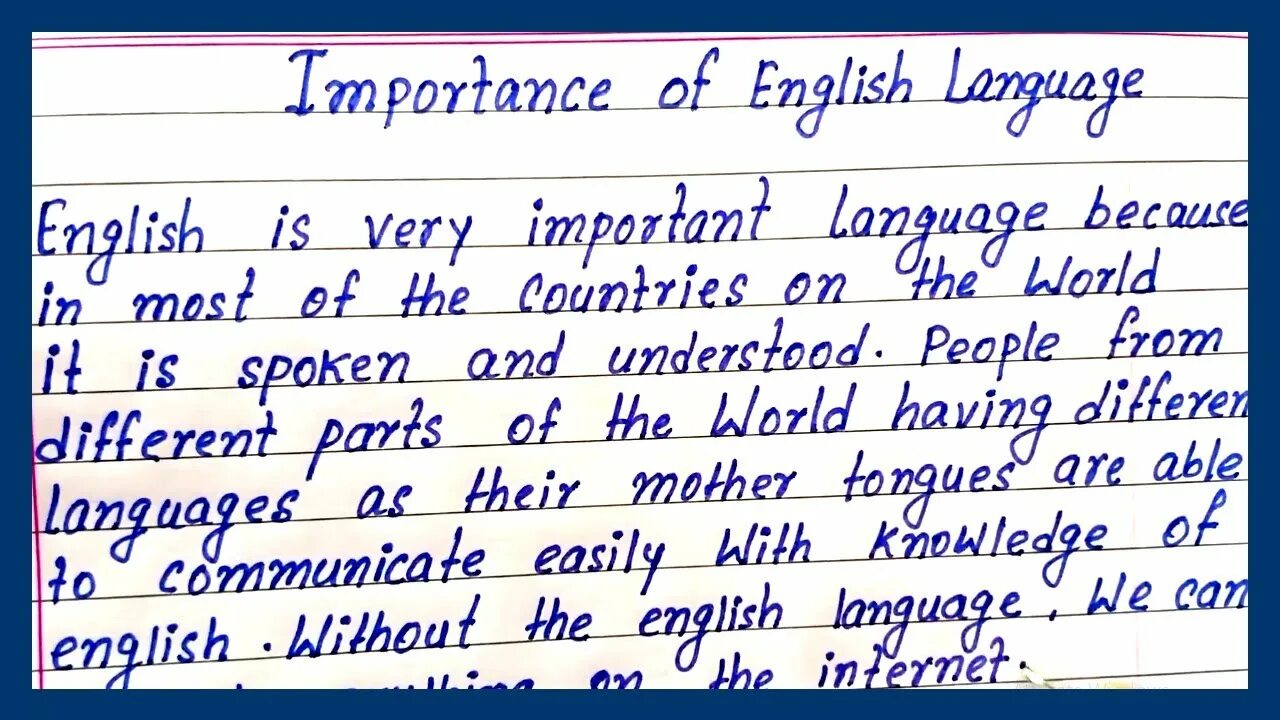 Importance of English Language
English is very important language because
in most of the countries on the World
it is spoken and understood. People from
different parts of the World having differen
languages as their mother tongues are able
to communicate easily With Knowledge of
english. Without the english language, We can
on the internet.